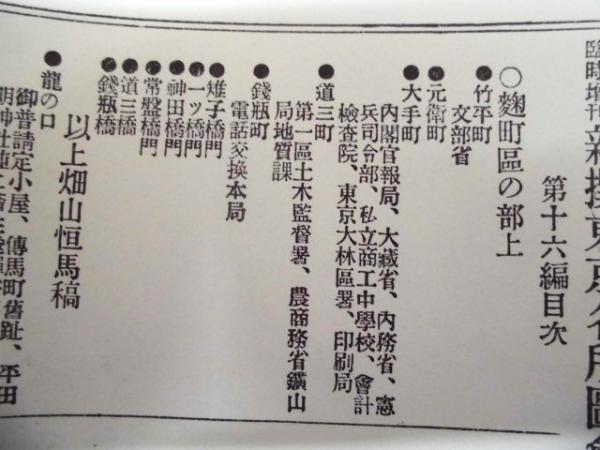 臨時増刊新撰東京名所圖
第十六編目次
○麴町區の部上
●竹平町
文部省
●元衛町
●大手町
內閣官報局、大藏省、內務省、憲
兵司令部、私立商工中學校、會計
檢査院、東京大林區署、印刷局
●道三町
第一區土木監督署、農商務省鑛山
局地質課
●錢瓶町
電話交換本局
●雉子橋門
●一ッ橋門
●神田橋門
●常盤橋門
●道三橋
●錢瓶橋
以上畑山恒馬稿
●龍の口
御普請定小屋、傳馬町舊趾、平田
明神社